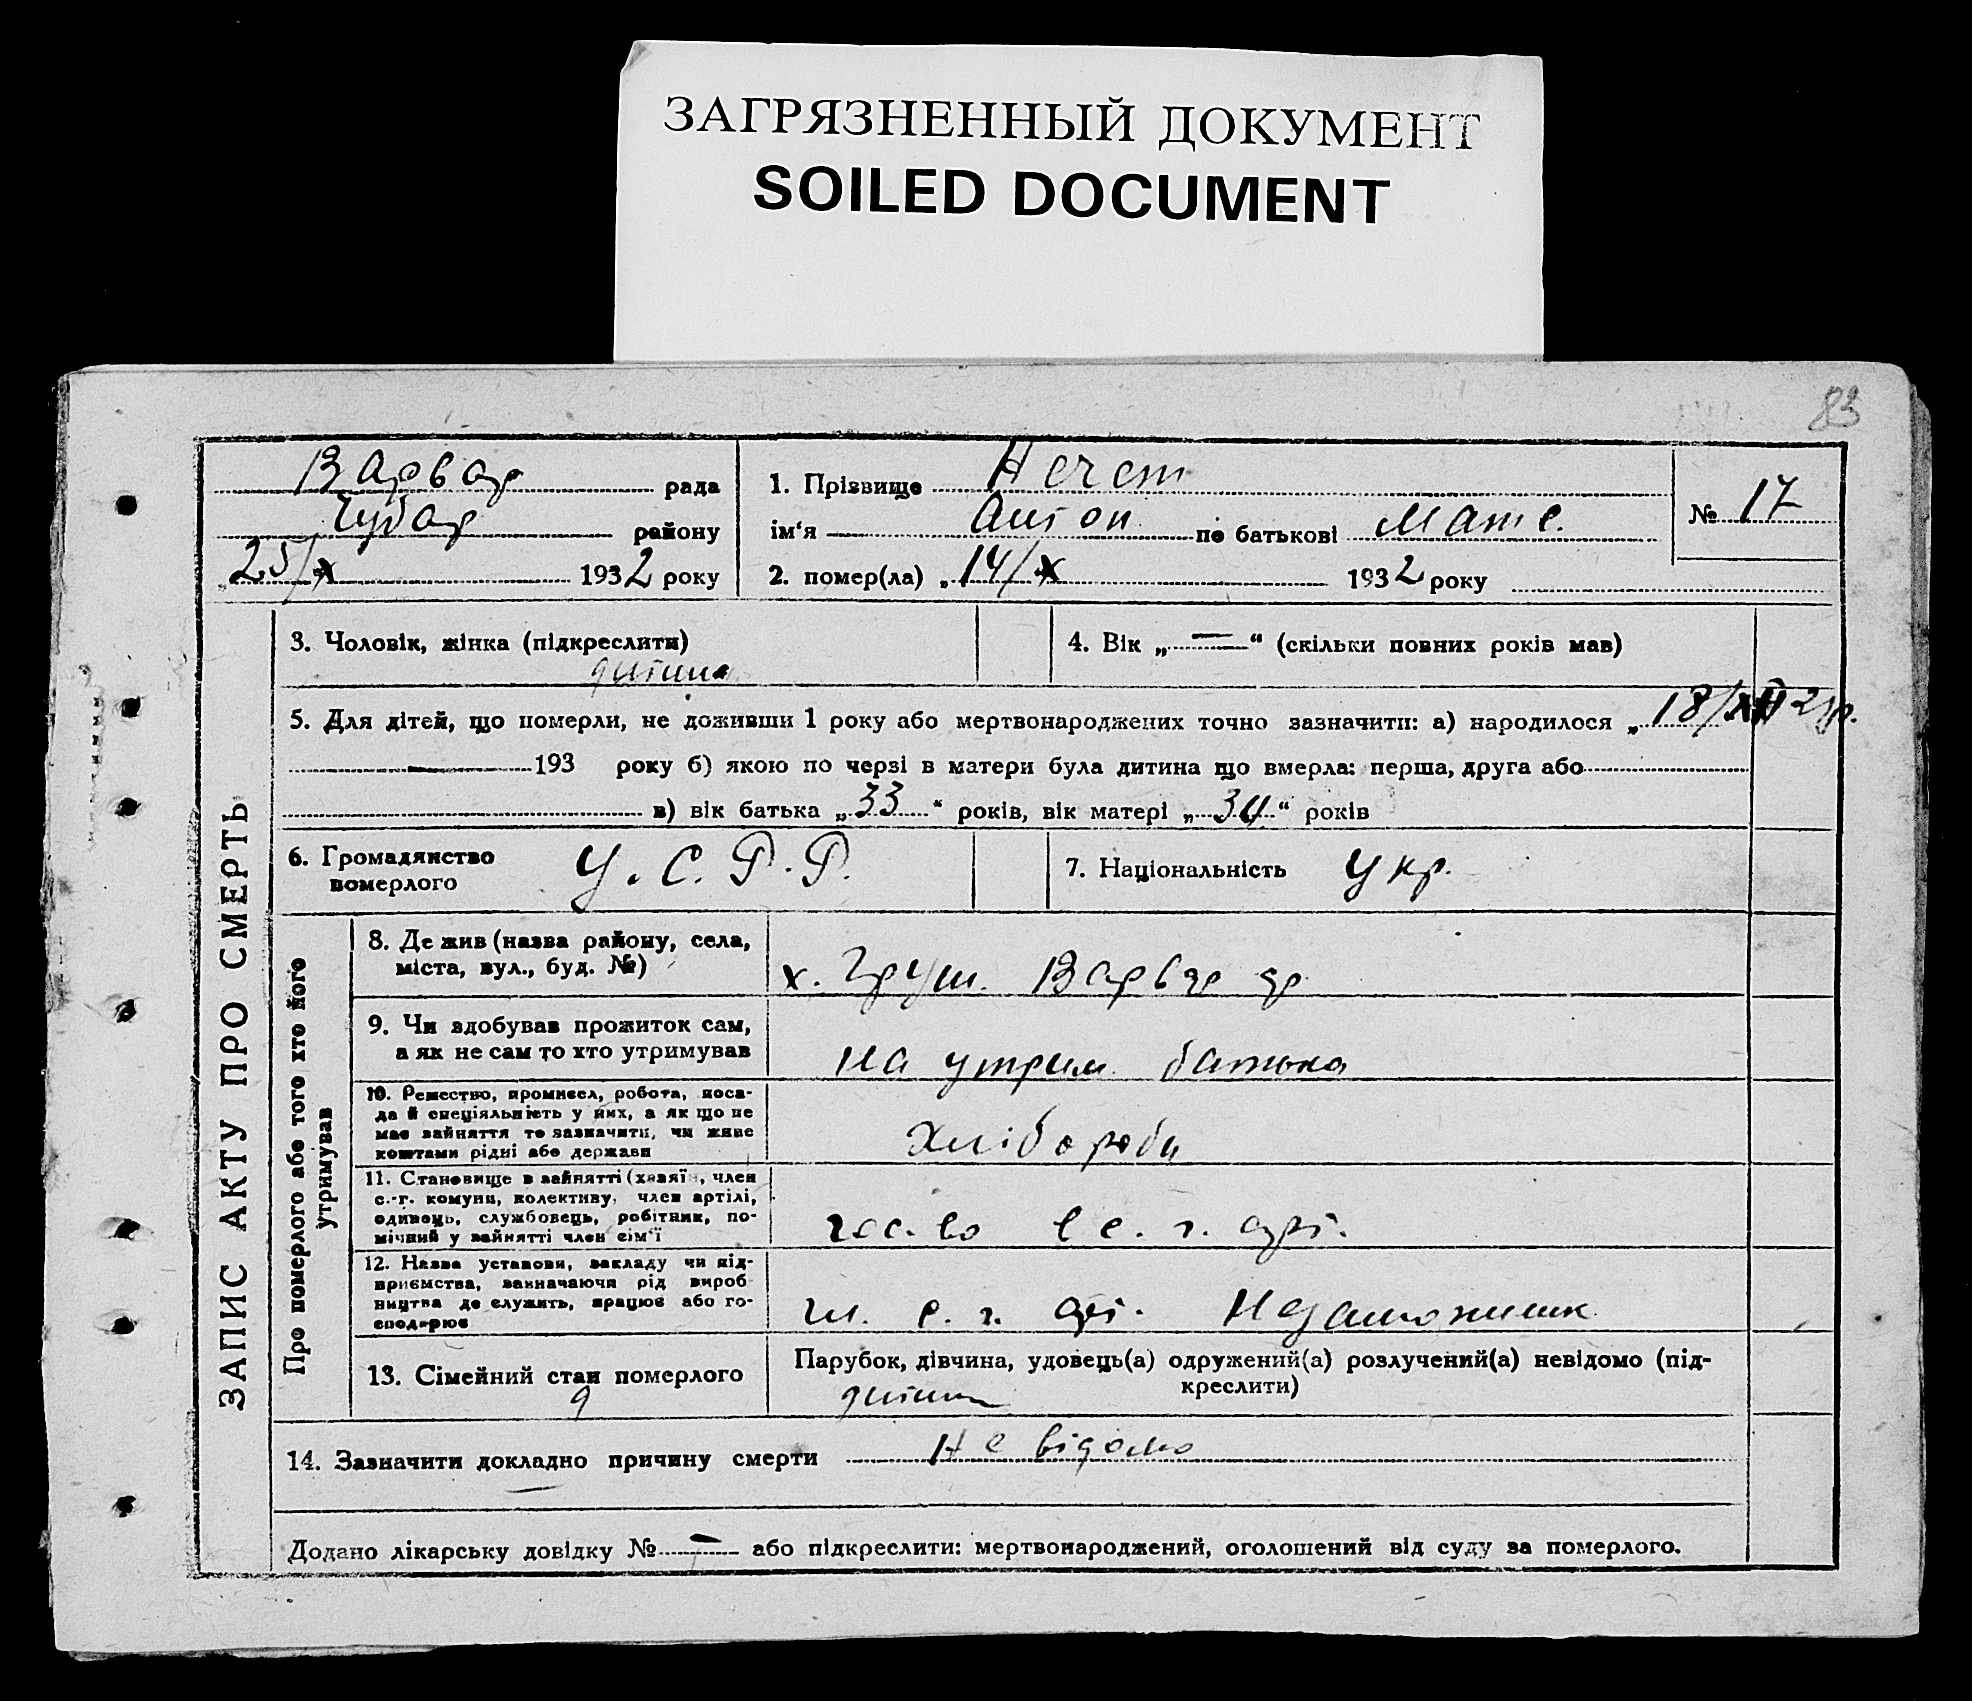 ЗАГРЯЗНЕННЫЙ ДОКУМЕНТ
SOILED DOCUMENT
83
Варвар рада
Чубар району
25/X 1932 року
1. Прізвище
ім'я Антон по батькові Матв.
2. помер(ла) „ 14/X 1932 року
№ 17
ЗАПИС АКТУ ПРО СМЕРТЬ
3. Чоловік, жінка (підкреслити)
дитина
4. Вік „ — “ (скільки повних років мав)
5. Для дітей, що померли, не доживши 1 року або мертвонароджених точно зазначити: а) народилося „ 18/
193 року б) якою по черзі в матери була дитина що вмерла: перша, друга або
в) вік батька „ 33 “ років, вік матері „ 34 “ років
6. Громадянство
померлого
У. С. Р. Р.
7. Національність Укр.
Про померлого або того хто його
утримував
8. Де жив (назва району, села,
міста, вул., буд. №)
х. Груш. Варвар
9. Чи здобував прожиток сам,
а як не сам то хто утримував
на утрим. батька
10. Ремество, промисел, робота, поса-
да й спеціяльність у них, а як що не
має зайняття то зазначити, чи живе
коштами рідні або держави
Хлібороби
11. Становище в зайнятті (хазяїн, член
с.-г. комуни, колективу, член артілі,
одинець, службовець, робітник, по-
мічний у зайнятті член сім'ї
с. г. арт.
12. Назва установи, закладу чи під-
приємства, зазначаючи рід вироб
ництва де служить, працює або го-
сподарює
с. г. арт. Незаможник
13. Сімейний стан померлого
Парубок, дівчина, удовець(а) одружений(а) розлучений(а) невідомо (під-
креслити)
дитина
14. Зазначити докладно причину смерти Не відомо
Додано лікарську довідку № — або підкреслити: мертвонароджений, оголошений від суду за померлого.